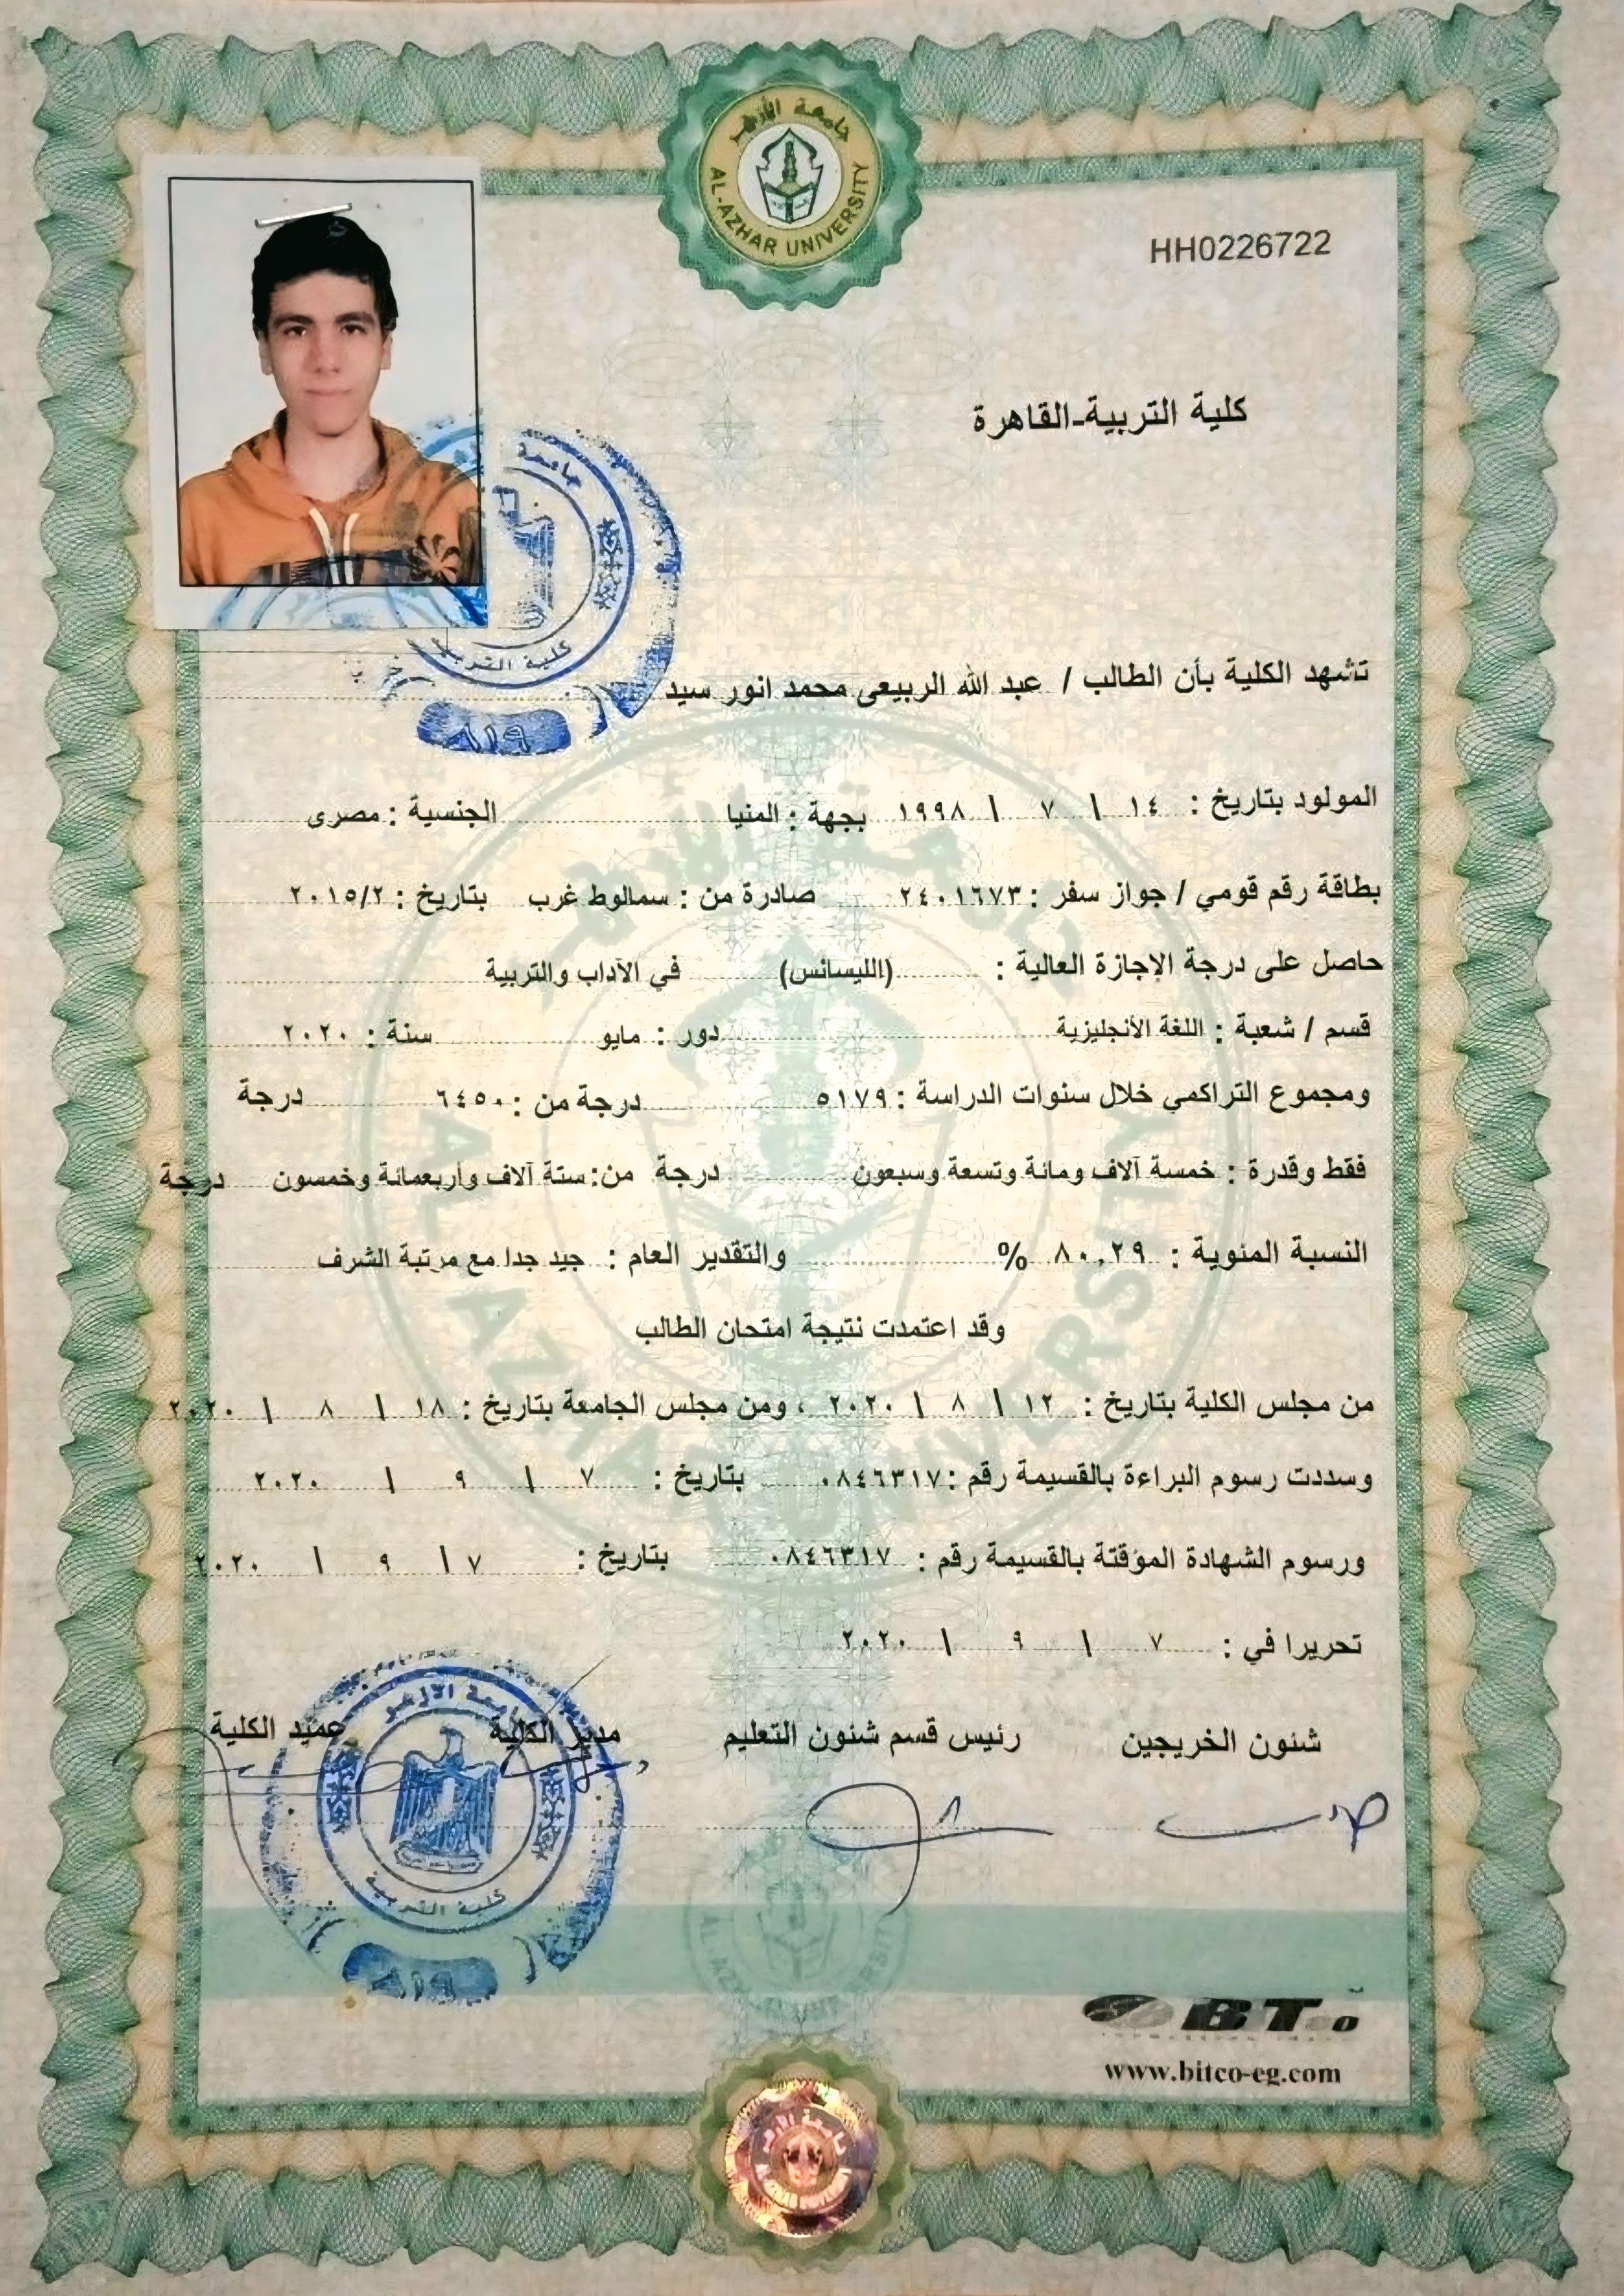 جامعة الأزهر
AL-AZHAR UNIVERSITY
HH0226722
كلية التربية-القاهرة
جامعة
كلية التربية
٨١٩
تشهد الكلية بأن الطالب / عبد الله الربيعى محمد انور سيد
المولود بتاريخ : ١٤ / ٧ / ١٩٩٨ بجهة : المنيا الجنسية : مصرى
بطاقة رقم قومي / جواز سفر : ٢٤٠١٦٧٣ صادرة من : سمالوط غرب بتاريخ : ٢٠١٥/٢
حاصل على درجة الإجازة العالية : (الليسانس) في الآداب والتربية
قسم / شعبة : اللغة الأنجليزية دور : مايو سنة : ٢٠٢٠
ومجموع التراكمي خلال سنوات الدراسة : ٥١٧٩ درجة من : ٦٤٥٠ درجة
فقط وقدرة : خمسة آلاف ومائة وتسعة وسبعون درجة من: ستة آلاف وأربعمائة وخمسون درجة
النسبة المئوية : ٨٠,٢٩ % والتقدير العام : جيد جدا مع مرتبة الشرف
وقد اعتمدت نتيجة امتحان الطالب
من مجلس الكلية بتاريخ : ١٢ / ٨ / ٢٠٢٠ ، ومن مجلس الجامعة بتاريخ : ١٨ / ٨ / ٢٠٢٠
وسددت رسوم البراءة بالقسيمة رقم : ٠٨٤٦٣١٧ بتاريخ : ٧ / ٩ / ٢٠٢٠
ورسوم الشهادة المؤقتة بالقسيمة رقم : ٠٨٤٦٣١٧ بتاريخ : ٧ / ٩ / ٢٠٢٠
تحريرا في : ٧ / ٩ / ٢٠٢٠
شئون الخريجين رئيس قسم شئون التعليم مدير الكلية عميد الكلية
جامعة الازهر
كلية التربية
٨١٩
AL-AZHAR UNIVERSITY
BTCo
www.bitco-eg.com